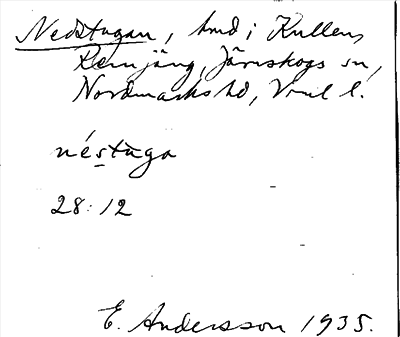 Nedstugan, hmd i Kullen,
Rännjäng, Järnskogs sn,
Nordmarks hd, Vrml l.
néstùga
28:12
E. Andersson 1935.